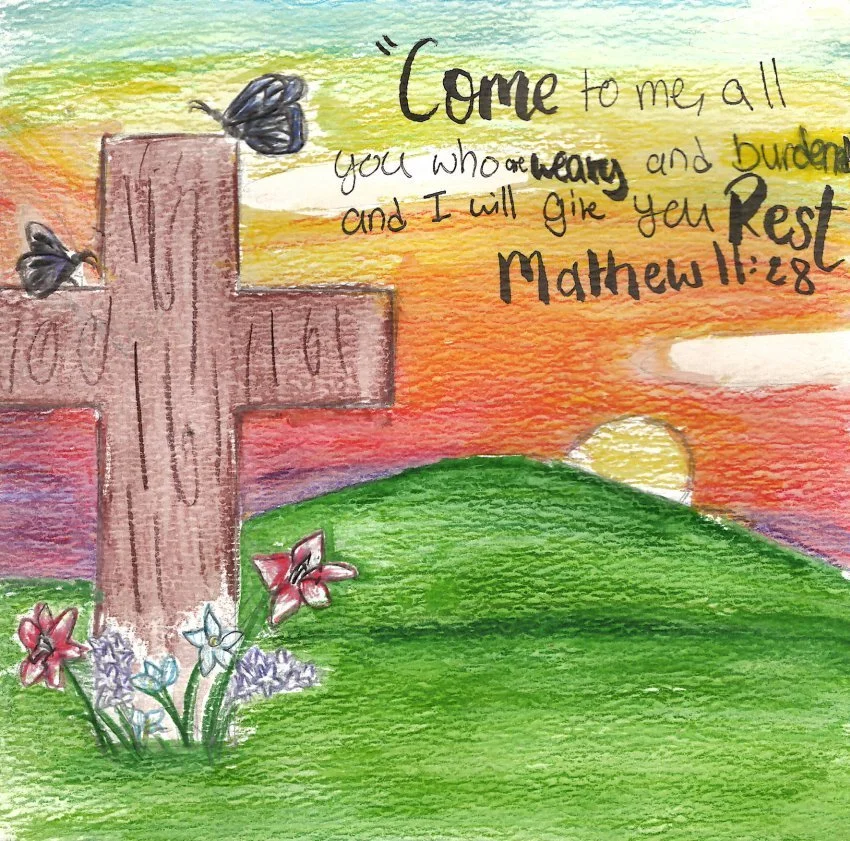 "Come to me, all
you who are weary and burdened
and I will give you Rest
Matthew 11:28